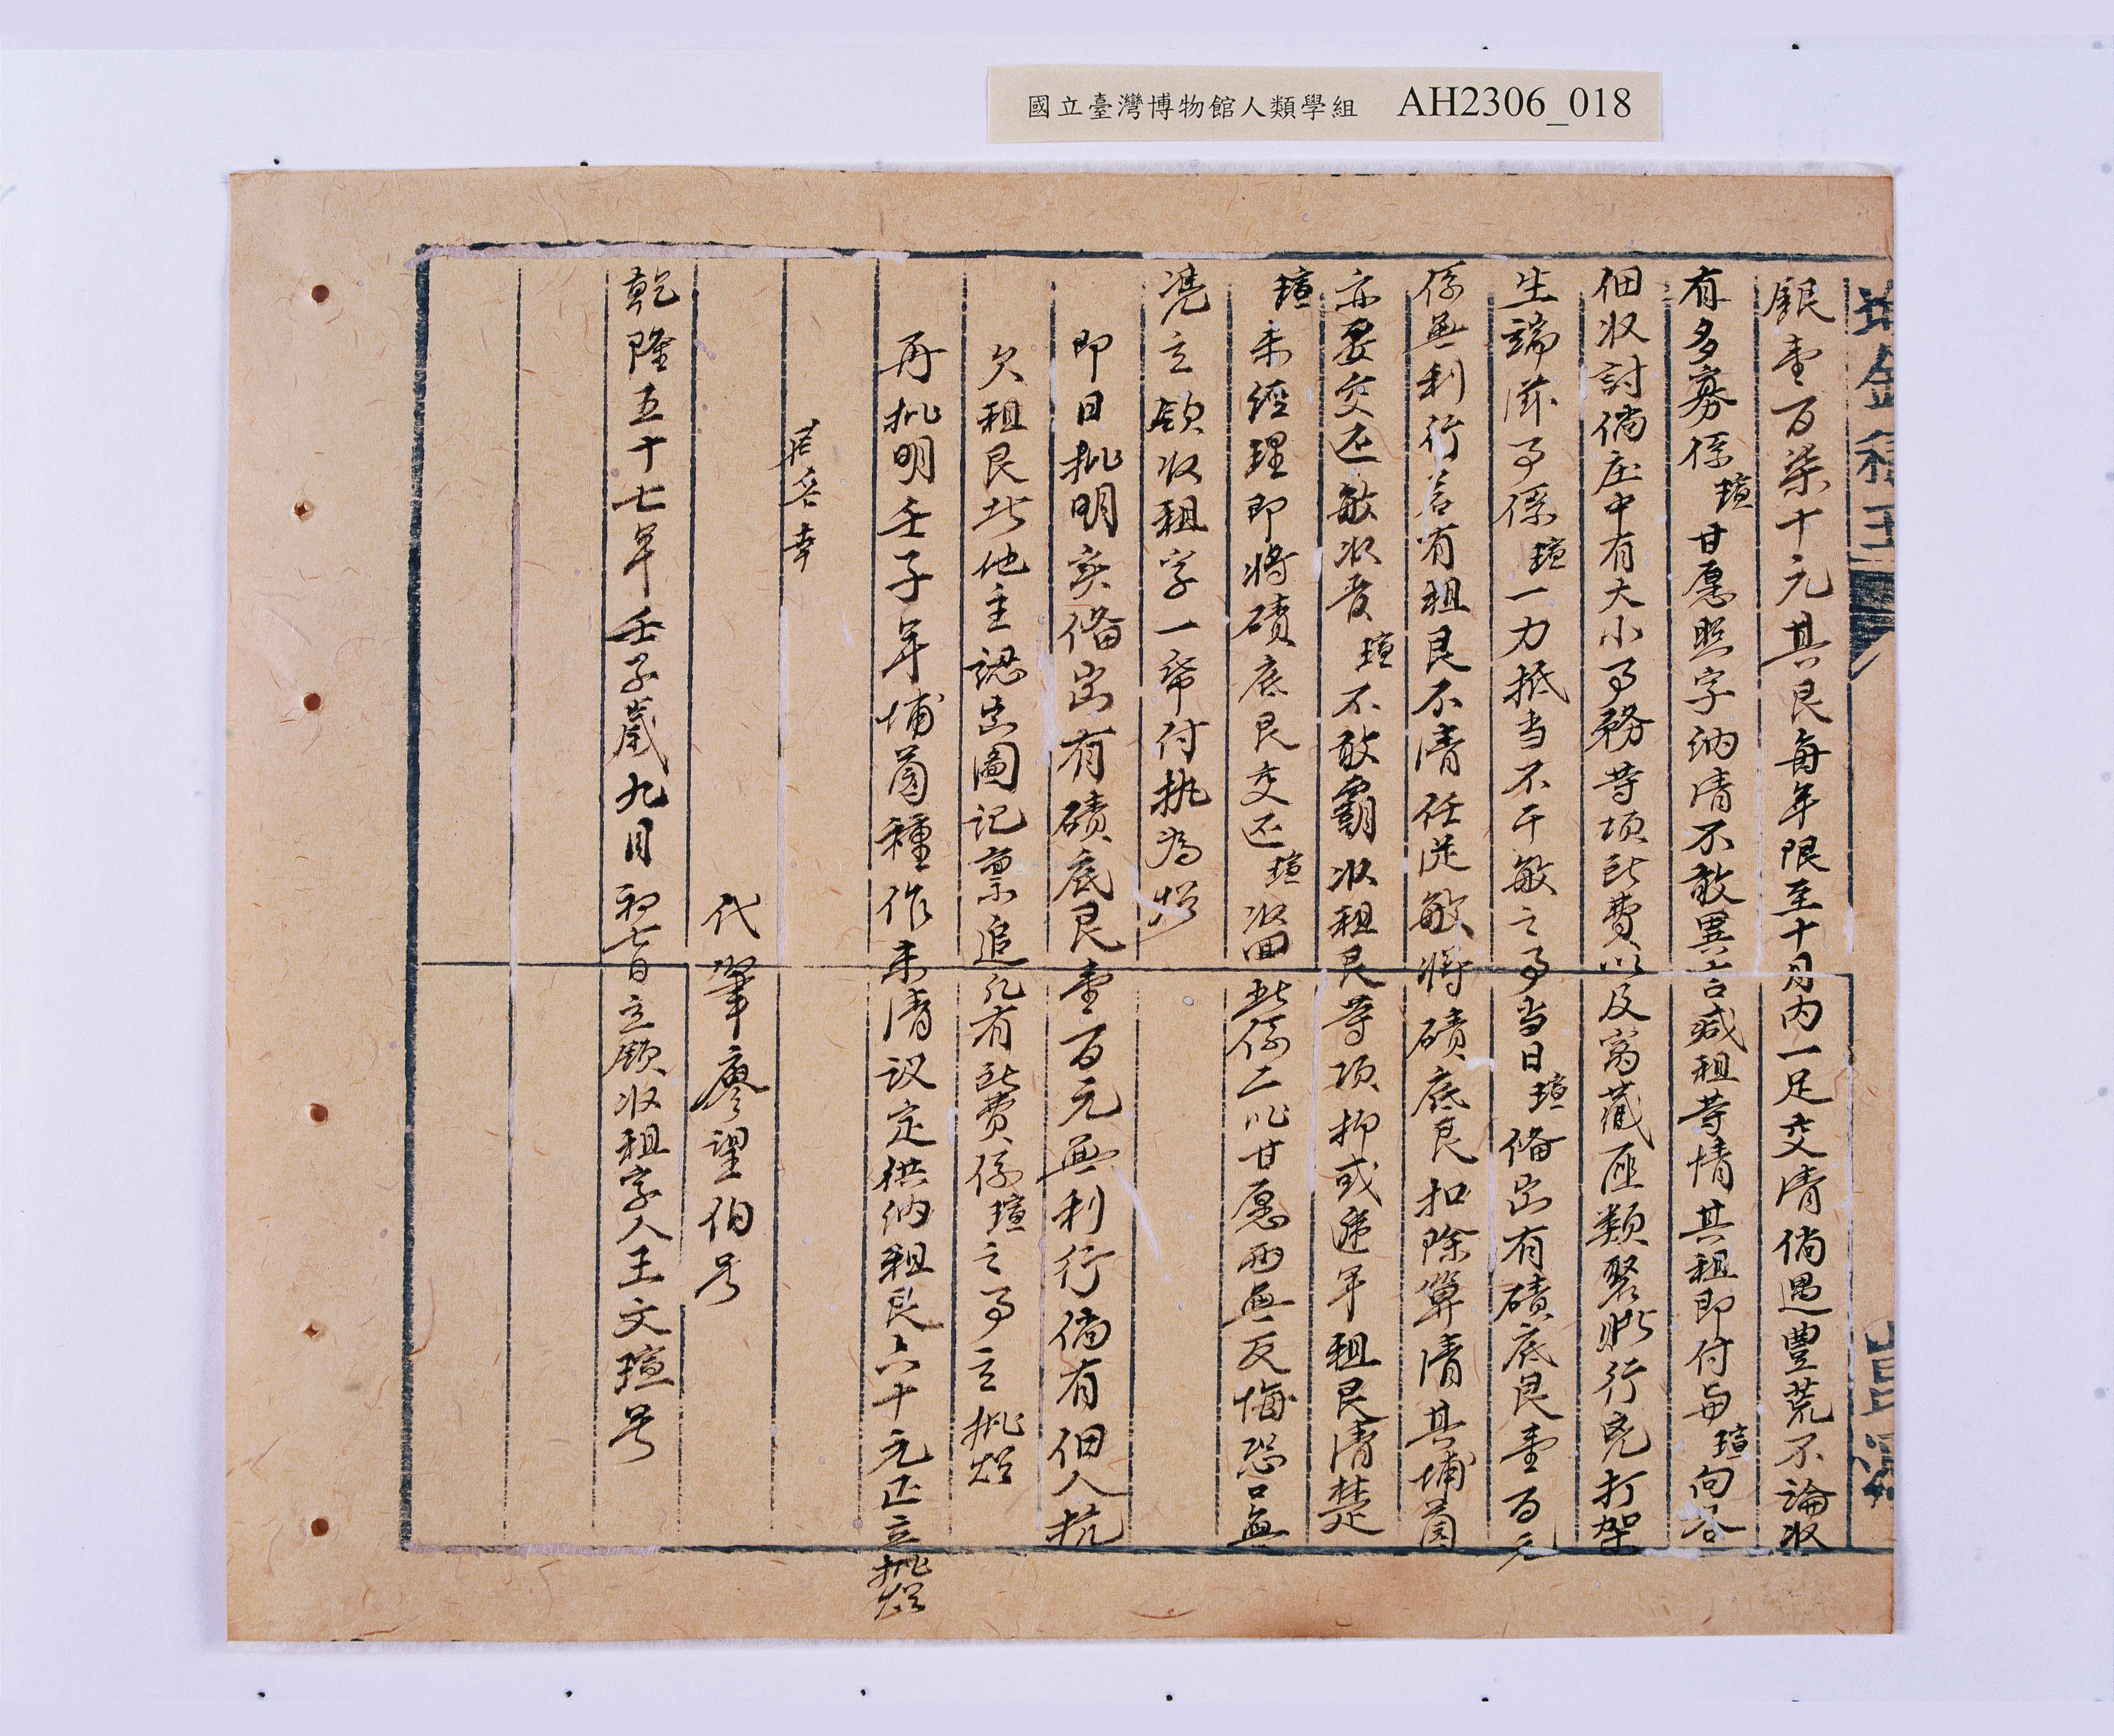 國立臺灣博物館人類學組 AH2306_018
銀壹百柒十元其艮每年限至十月內一足交清倘遇豊荒不論收
有多寡係瑄甘愿照字納清不敢異言减租等情其租即付与瑄向各
佃收討倘庄中有大小事務等項阝費以及窩藏匪類聚眾行兇打架
生端滋事係瑄一力抵当不干敏之事当日瑄偹出有磧底艮壹百元
係無利行若有租艮不清任從敏將磧底艮扣除算清其埔菌
亦要交还敏收贌瑄不敢霸收租艮等項抑或遞年租艮清楚
瑄未經理即將磧底艮交还瑄收回此係二比甘愿两無反悔恐口無
凴立領收租字一帋付执為炤
即日批明实偹出有磧底艮壹百元無利行倘有佃人抗
欠租艮此他主認出圖記禀追凡有阝費係瑄之事立批炤
再批明壬子年埔菌種作未清议定供納租艮六十元正立批炤
代筆廖望伯号
乾隆五十七年壬子歲九月初七日立領收租字人王文瑄号